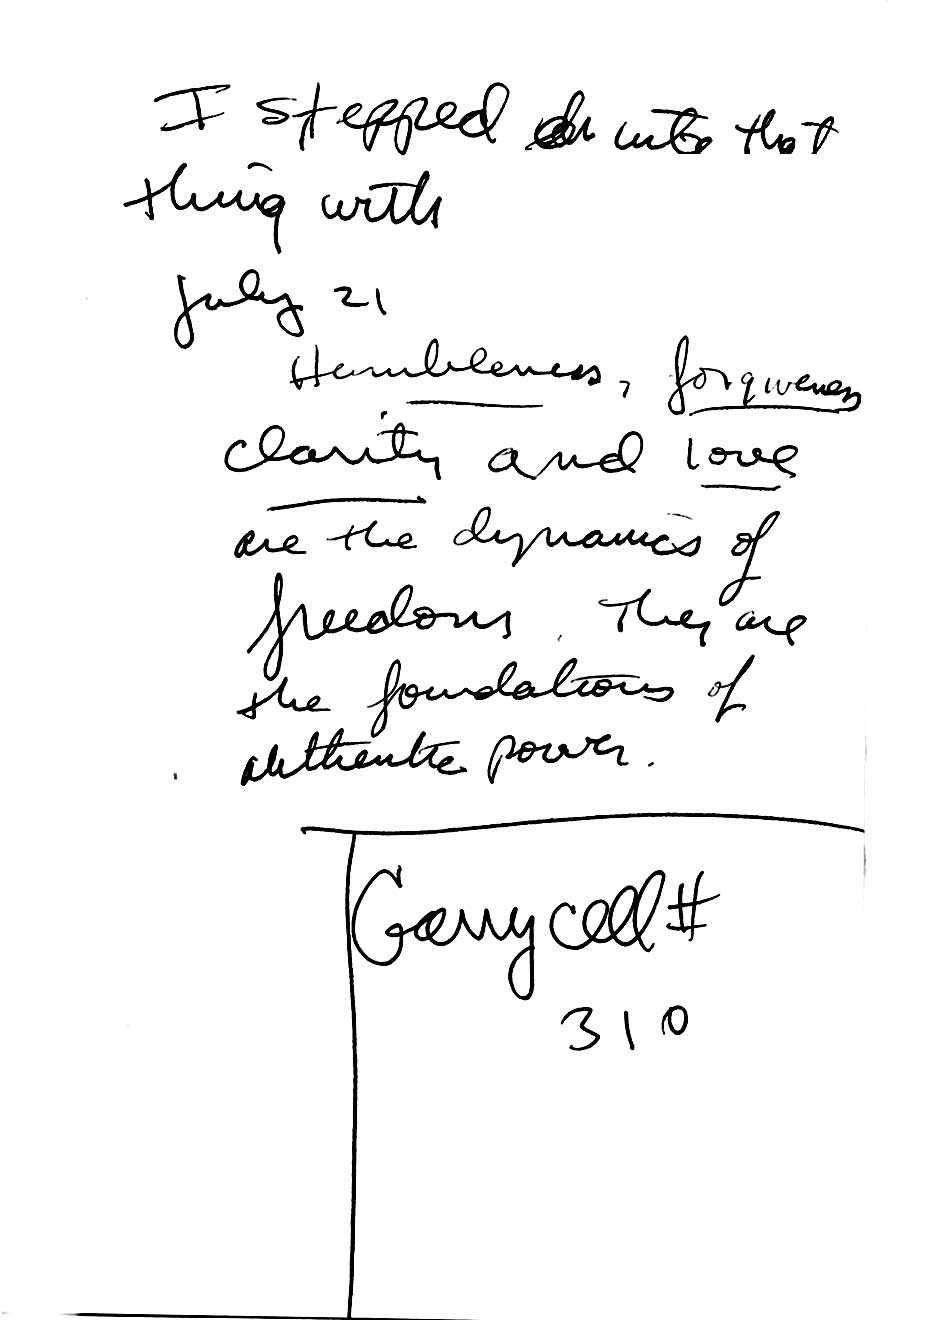 I stepped into that
thing with
July 21
Humbleness, forgiveness
clarity and love
are the dynamics of
freedom. They are
the foundations of
authentic power.
Garry cell #
310